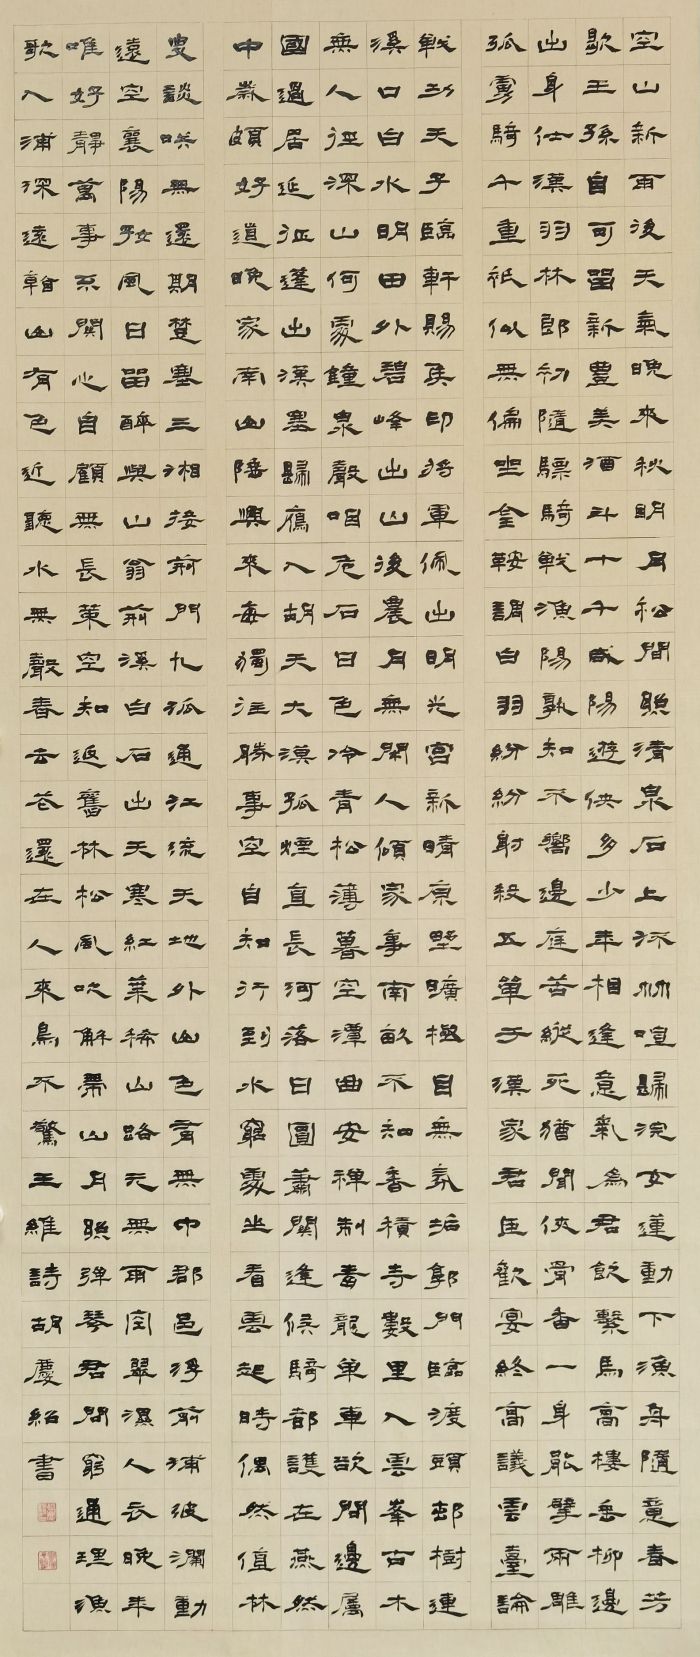 空山新雨後天氣晚來秋明月松間照清泉石上流竹喧歸浣女蓮動下漁舟隨意春芳
歇王孫自可留新豐美酒斗十千咸陽遊俠多少年相逢意氣為君飲繫馬高樓垂柳邊
出身仕漢羽林郎初隨驃騎戰漁陽孰知不嚮邊庭苦縱死猶聞俠骨香一身能擘兩雕
弧虜騎千重祇似無偏坐金鞍調白羽紛紛射殺五單于漢家君臣歡宴終高議雲臺論
戰功天子臨軒賜侯印將軍佩出明光宮新晴原野曠極目無氛垢郭門臨渡頭邨樹連
溪口白水明田外碧峰出山後農月無閑人傾家事南畝不知香積寺數里入雲峯古木
無人徑深山何處鐘泉聲咽危石日色冷青松薄暮空潭曲安禪制毒龍單車欲問邊屬
國過居延征蓬出漢塞歸鴈入胡天大漠孤煙直長河落日圓蕭關逢候騎都護在燕然
中歲頗好道晚家南山陲興來每獨往勝事空自知行到水窮處坐看雲起時偶然值林
叟談笑無還期楚塞三湘接荊門九派通江流天地外山色有無中郡邑浮前浦波瀾動
遠空襄陽好風日留醉與山翁荊溪白石出天寒紅葉稀山路元無雨空翠濕人衣晚年
唯好靜萬事不關心自顧無長策空知返舊林松風吹解帶山月照彈琴君問窮通理漁
歌入浦深遠看山有色近聽水無聲春去花還在人來鳥不驚王維詩胡慶紹書